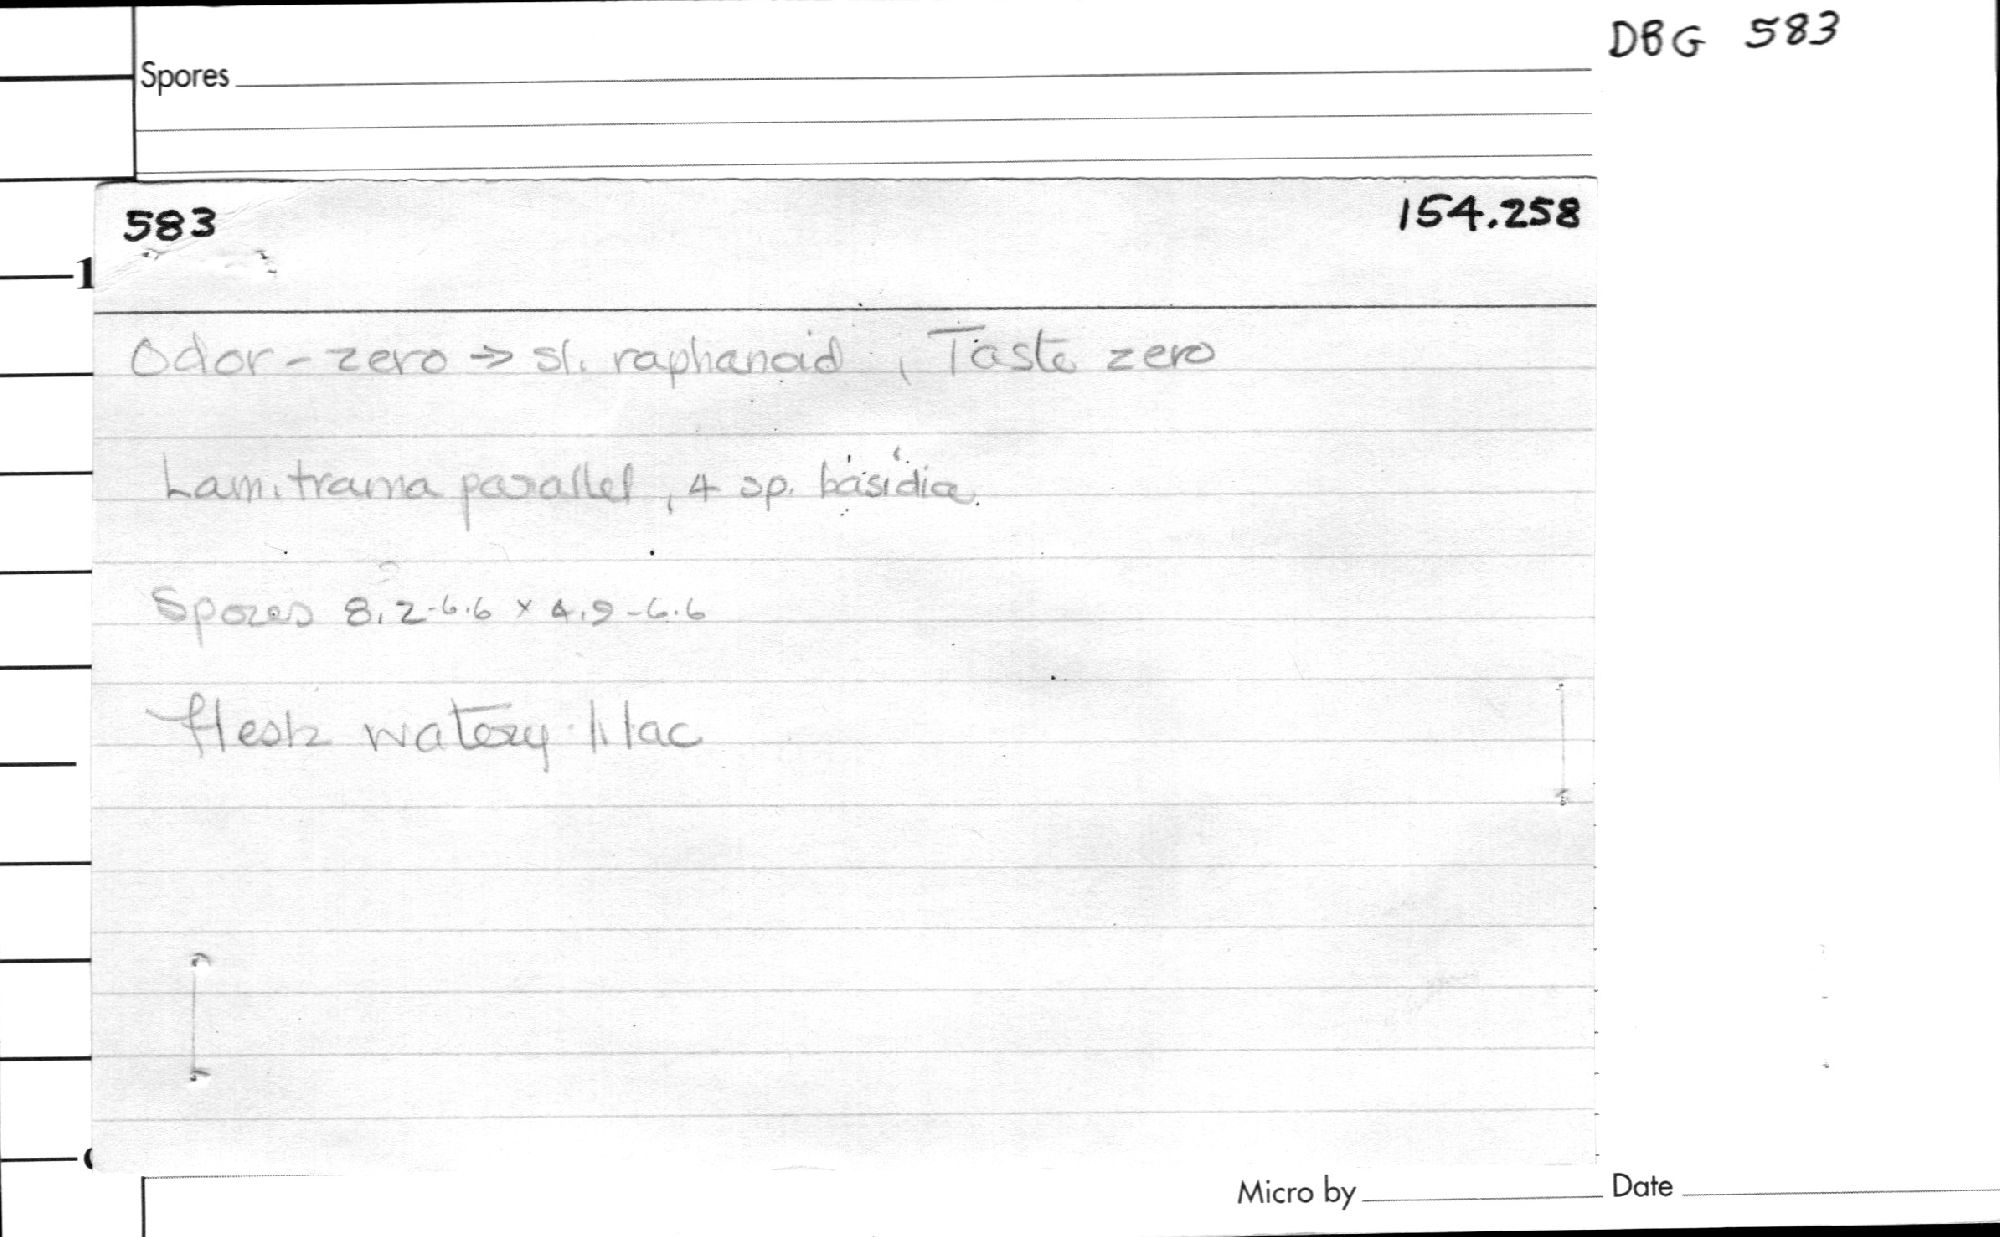 DBG 583
Spores
583 154.258
1
Odor - zero → sl. raphanoid, Taste zero
Lam. trama parallel, 4 sp. basidia.
Spores 8.2-6.6 x 4.9-6.6
flesh watery lilac
Micro by Date